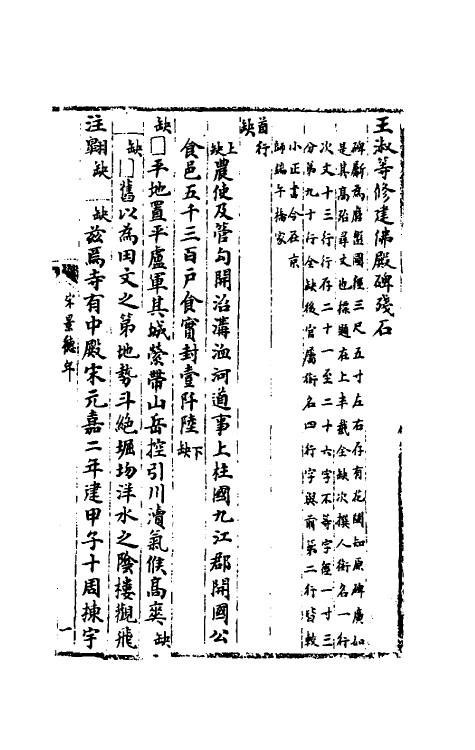 王淑等修建佛殿碑殘石
碑斷為磨盤圓徑三尺五寸左右存有花闌知原碑廣如
是其高殆尋丈也標題在上半截全缺次撰人銜名一行
次文十三行行存二十一至二十六字不等字徑一寸三
分第九十行全缺後官屬銜名四行字與前第二行皆較
小正書今在京
師端午橋家
首行缺
上缺農使及管句開治溝洫河道事上柱國九江郡開國公
食邑五千三百戶食實封壹阡陸下缺
缺囗平地置平盧軍其城縈帶山岳控引川瀆氣候高爽缺
缺囗舊以為田文之第地勢斗絕堀圽洋水之陰樓觀飛
注翱缺 缺茲焉寺有中殿宋元嘉二年建甲子十周棟宇
宋景德年
一